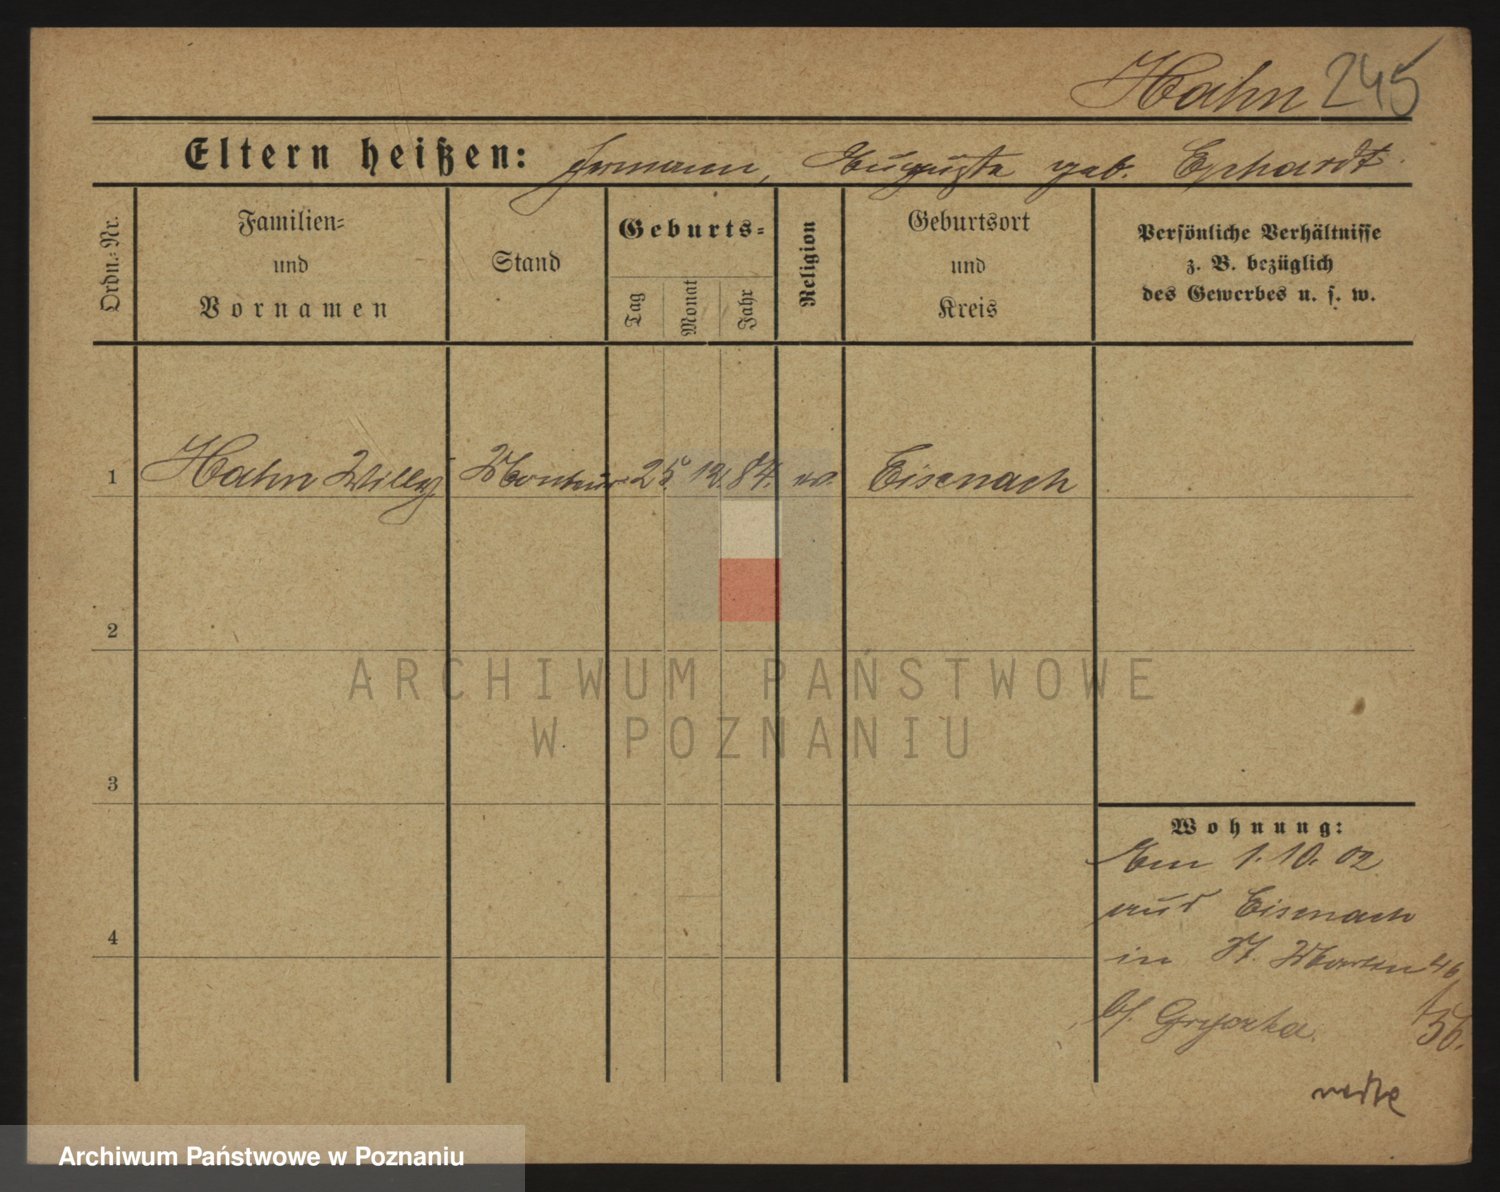 Hahn 245
Eltern heißen: Hermann, Auguste geb. Ephardt
Ordn.-Nr.
Familien-
und
Vornamen
Stand
Geburts-
Tag
Monat
Jahr
Religion
Geburtsort
und
Kreis
Persönliche Verhältnisse
z. B. bezüglich
des Gewerbes u. s. w.
1 Hahn Willy Monteur 25. 12. 84. ev. Eisenach
2
ARCHIWUM PAŃSTWOWE
W POZNANIU
3
Wohnung:
Am 1. 10. 02
aus Eisenach
4
in St. Martin 46
b/. 56.
Archiwum Państwowe w Poznaniu